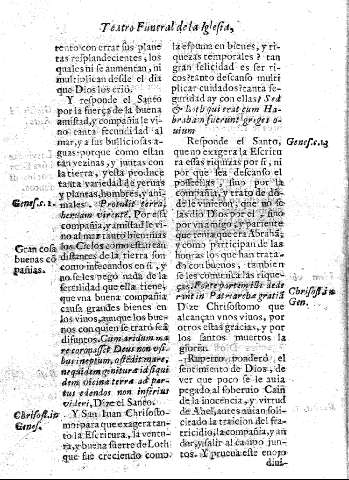 Teatro Funeral de la Iglesia,
tento con errar sus plane
tas resplandecientes, los
quales ni se aumentan, ni
multiplican desde el dia
que Dios los criò.
Y responde el Santo
por la fuerça de la buena
amistad, y compañia le vi-
no tanta fecundidad al
mar, y a sus bulliciosas a-
guas: porque como estan
tã vezinas, y juntas con
la tierra, y esta produce
tanta variedad de yeruas
y plantas, hombres, y ani-
males. Protulit terra,
herbam virentē. Por esta
compañia, y amistad le vi-
no al mar tanto bien: mas
los Cielos como estan tan
distantes de la tierra son
como infecundos en si, y
no se les pegò nada de la
fertilidad que ella tiene,
que vna buena compañia
causa grandes bienes en
los vinos, aunque los bue-
nos con quien se tratò sea
difuntos. Cum aridum ma
re compasset Deus non vsi
bus ineptum, ostēdit mare,
nequidem genitura id siqui
dem vicina terra ad par-
tus edendos non inferius
videri, Dize el Santo.
Y San Iuan Chrisosto-
mo para que exagera tan-
to la Escritura, la ventu-
ra, y buena suerte de Loth
que fue creciendo como
Genes. c. 1.
Gran cosa
buenas cō
pañias.
Chrisost. in
Genes.
la espuma en bienes, y ri-
quezas temporales? tan
gran felicidad es ser ri-
cos? tanto descanso multi
plicar cuidados? tanta se-
guridad ay con ellas? Sed
& Loth qui erat cum Ha-
braham fuerunt greges o-
uium
Responde el Santo,
que no exagera la Escritu
ra estas riquezas por si, ni
por que sea descanso el
posseellas, sino por la
compañia, y trato de dō-
de le vinieron, que no se
las dio Dios por el, sino
por vn amigo, y pariente
que tenia que era Abrahã,
y como participan de las
honras los que han trata-
do con buenos, tambien
se les comunica las rique-
zas. Forte partem ibi aede
runt in Patriarcha gratiã
Dize Chrisostomo que
alcançan vnos vinos, por
otros estas gracias, y por
los santos muertos la
gloria.
Ruperto ponderò el
sentimiento de Dios, de
ver que poco se le auia
pegado al soberuio Cain
de la inocencia, y virtud
de Abel, antes auian soli-
citado la traicion del fra-
tricidio, la compañia, y an
dar, y salir al campo jun-
tos. Y prueua este enojo
diui-
Genes. c. 13
Chrisost. in
Gen.